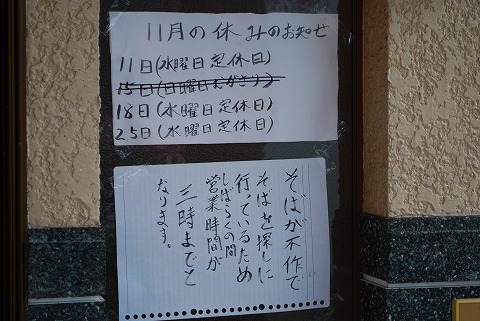 11月の休みのお知せ
11日(水曜日定休日)
18日(水曜日定休日)
25日(水曜日定休日)
そばが不作で
そばを探しに
行っているため
しばらくの間
営業時間が
三時までと
なります。